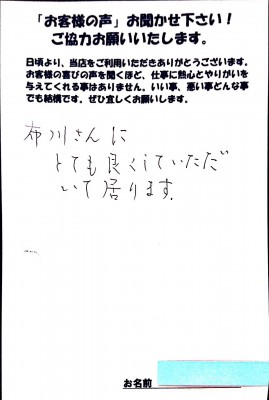 「お客様の声」お聞かせ下さい！
ご協力お願いいたします。
日頃より、当店をご利用いただきありがとうございます。
お客様の喜びの声を聞くほど、仕事に熱心とやりがいを
与えてくれる事はありません。いい事、悪い事どんな事
でも結構です。ぜひ宜しくお願いします。
布川さんに
とても良くしていただ
いて居ります。
お名前